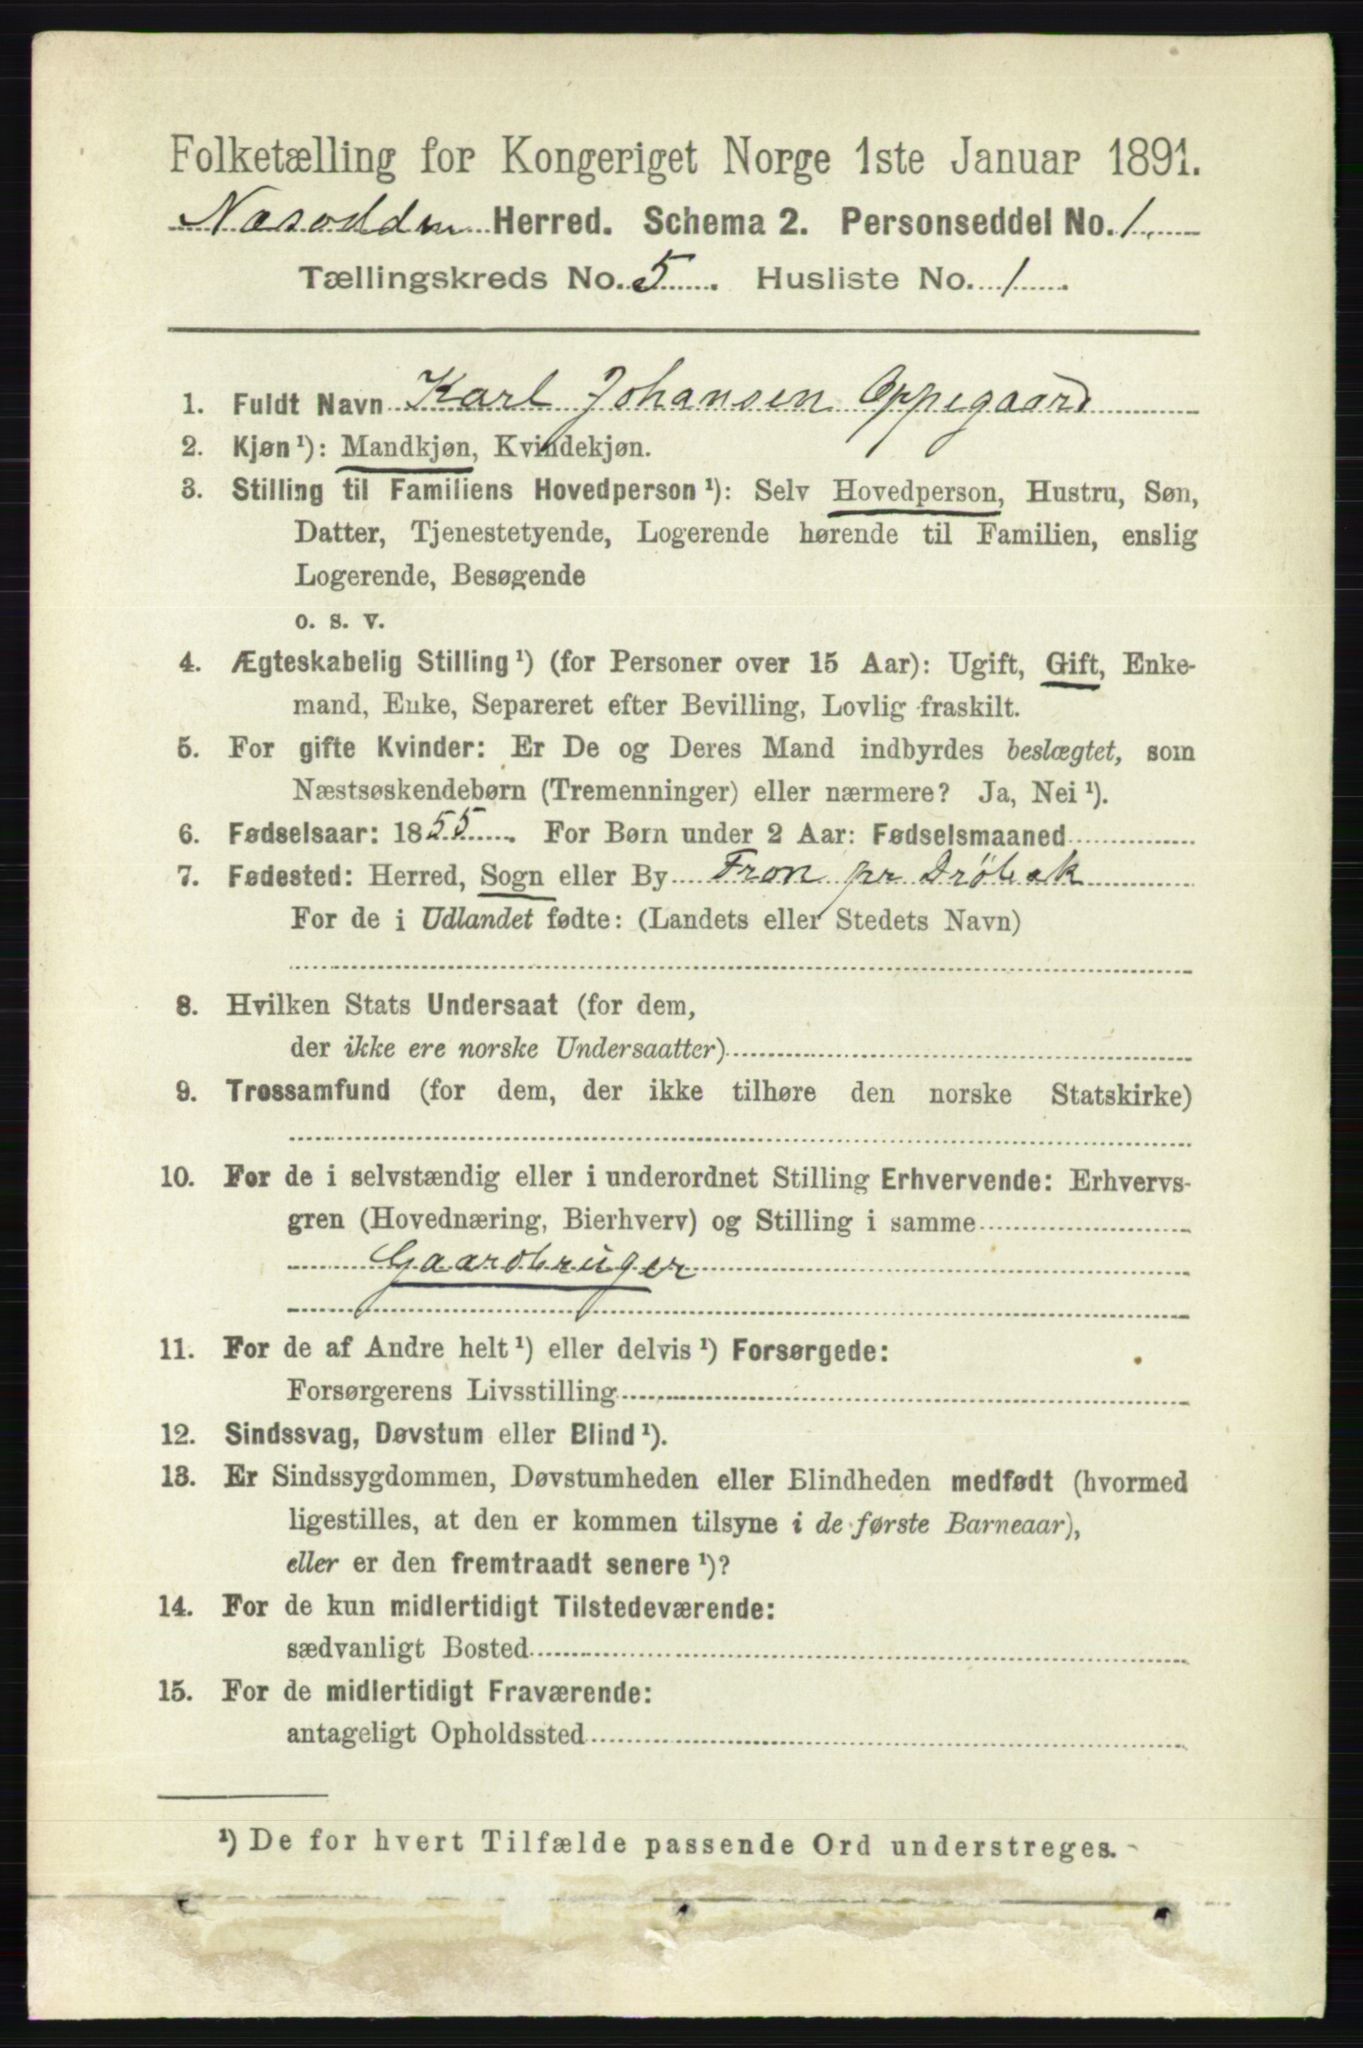 Folketælling for Kongeriget Norge 1ste Januar 1891.
Næsodden Herred. Schema 2. Personseddel No. 1.
Tællingskreds No. 5. Husliste No. 1.
1. Fuldt Navn Karl Johansen Oppegaard
2. Kjøn ¹): Mandkjøn, Kvindekjøn.
3. Stilling til Familiens Hovedperson ¹): Selv Hovedperson, Hustru, Søn,
Datter, Tjenestetyende, Logerende hørende til Familien, enslig
Logerende, Besøgende
o. s. v.
4. Ægteskabelig Stilling ¹) (for Personer over 15 Aar): Ugift, Gift, Enke-
mand, Enke, Separeret efter Bevilling, Lovlig fraskilt.
5. For gifte Kvinder: Er De og Deres Mand indbyrdes beslægtet, som
Næstsøskendebørn (Tremenninger) eller nærmere? Ja, Nei ¹).
6. Fødselsaar: 1855. For Børn under 2 Aar: Fødselsmaaned
7. Fødested: Herred, Sogn eller By Fron pr Drøbak
For de i Udlandet fødte: (Landets eller Stedets Navn)
8. Hvilken Stats Undersaat (for dem,
der ikke ere norske Undersaatter)
9. Trossamfund (for dem, der ikke tilhøre den norske Statskirke)
10. For de i selvstændig eller i underordnet Stilling Erhvervende: Erhvervs-
gren (Hovednæring, Bierhverv) og Stilling i samme
Gaardbruger
11. For de af Andre helt ¹) eller delvis ¹) Forsørgede:
Forsørgerens Livsstilling
12. Sindssvag, Døvstum eller Blind ¹).
13. Er Sindssygdommen, Døvstumheden eller Blindheden medfødt (hvormed
ligestilles, at den er kommen tilsyne i de første Barneaar),
eller er den fremtraadt senere ¹)?
14. For de kun midlertidigt Tilstedeværende:
sædvanligt Bosted
15. For de midlertidigt Fraværende:
antageligt Opholdssted
¹) De for hvert Tilfælde passende Ord understreges.